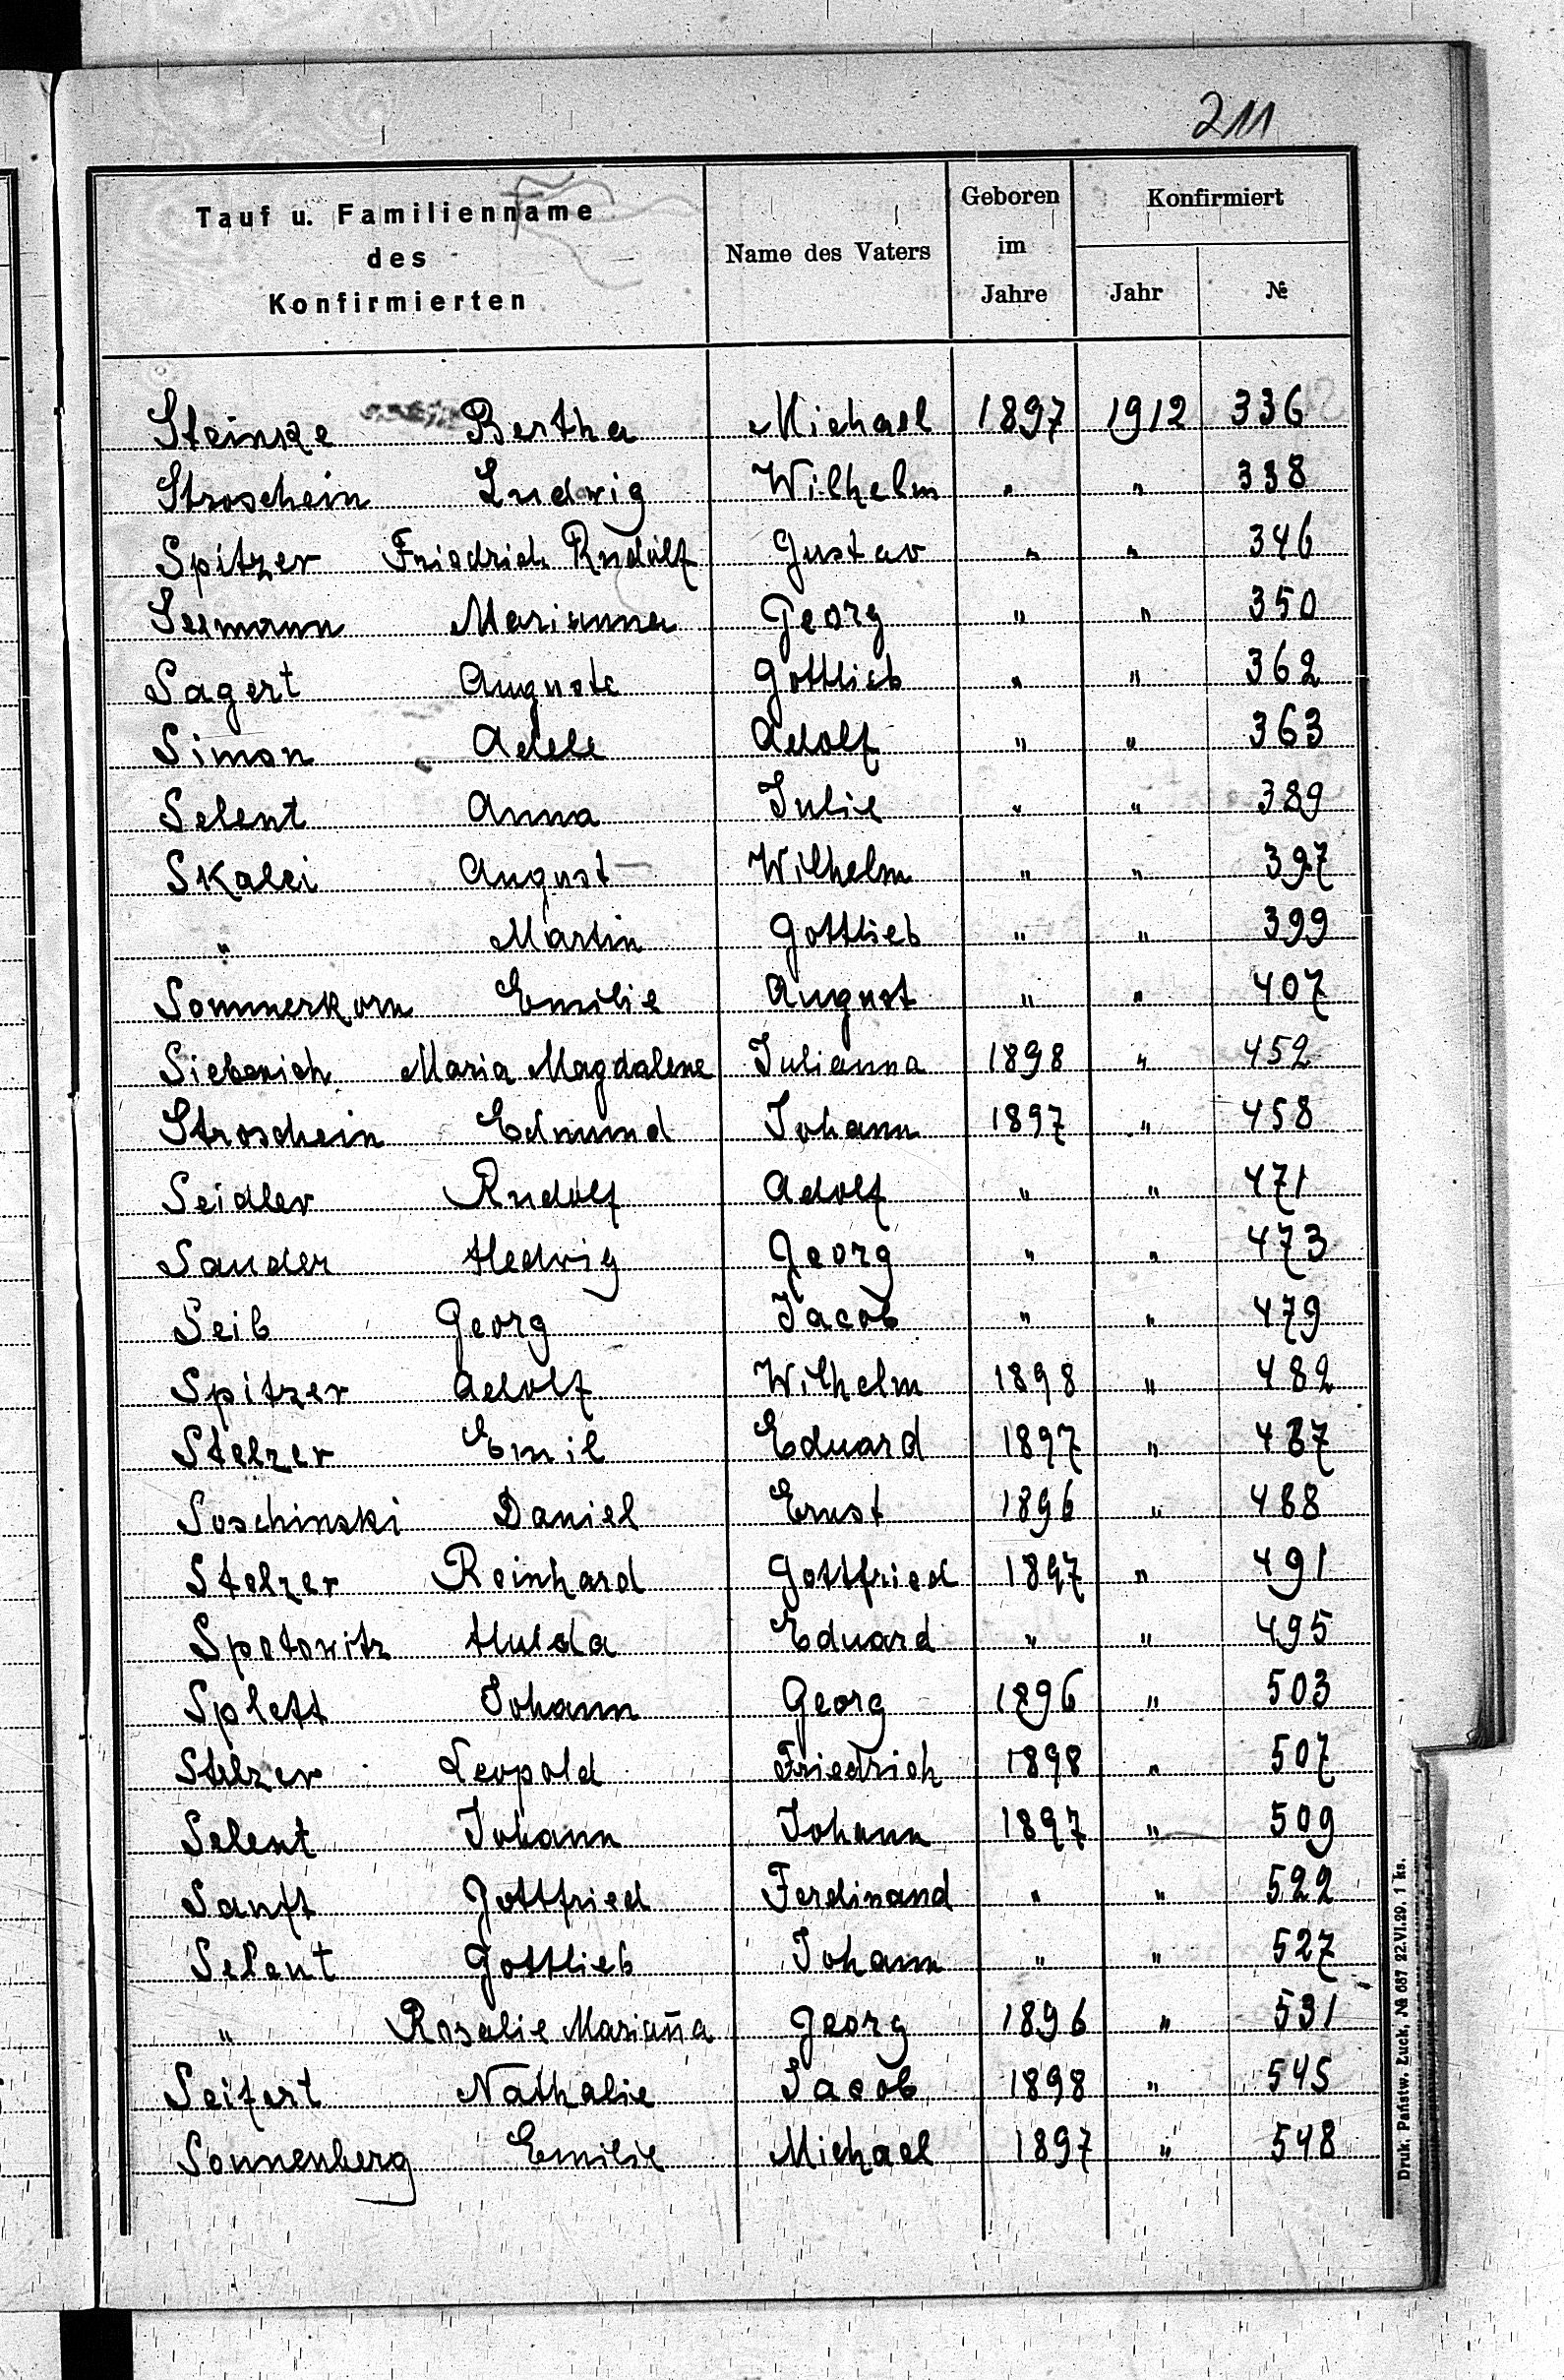 211
Tauf u. Familienname des Konfirmierten Name des Vaters Geboren im Jahre Konfirmiert Jahr №
Steinke Bertha Michael 1897 1912 336
Stroschein Ludwig Wilhelm " " 338
Spitzer Friedrich Rudolf Gustav " " 346
Semann Marianna Georg " " 350
Sagert Auguste Gottlieb " " 362
Simon Adele Adolf " " 363
Selent Anna Julie " " 389
Skalei August Wilhelm " " 397
" Martin Gottlieb " " 399
Sommerkorn Emilie August " " 407
Sieberich Maria Magdalene Julianna 1898 " 452
Stroschein Edmund Johann 1897 " 458
Seidler Rudolf Adolf " " 471
Sander Hedwig Georg " " 473
Seib Georg Jacob " " 479
Spitzer Adolf Wilhelm 1898 " 482
Stelzer Emil Eduard 1897 " 487
Soschinski Daniel Ernst 1896 " 488
Stelzer Reinhard Gottfried 1897 " 491
Spotowitz Hulda Eduard " " 495
Splett Johann Georg 1896 " 503
Stelzer Leopold Friedrich 1898 " 507
Selent Johann Johann 1897 " 509
Sanft Gottfried Ferdinand " " 522
Selent Gottlieb Johann " " 527
" Rosalie Marian̄a Georg 1896 " 531
Seifert Nathalie Jacob 1898 " 545
Sonnenberg Emilie Michael 1897 " 548
Druk. Państw. Łuck, № 687 22.VI.29. 1 ks.